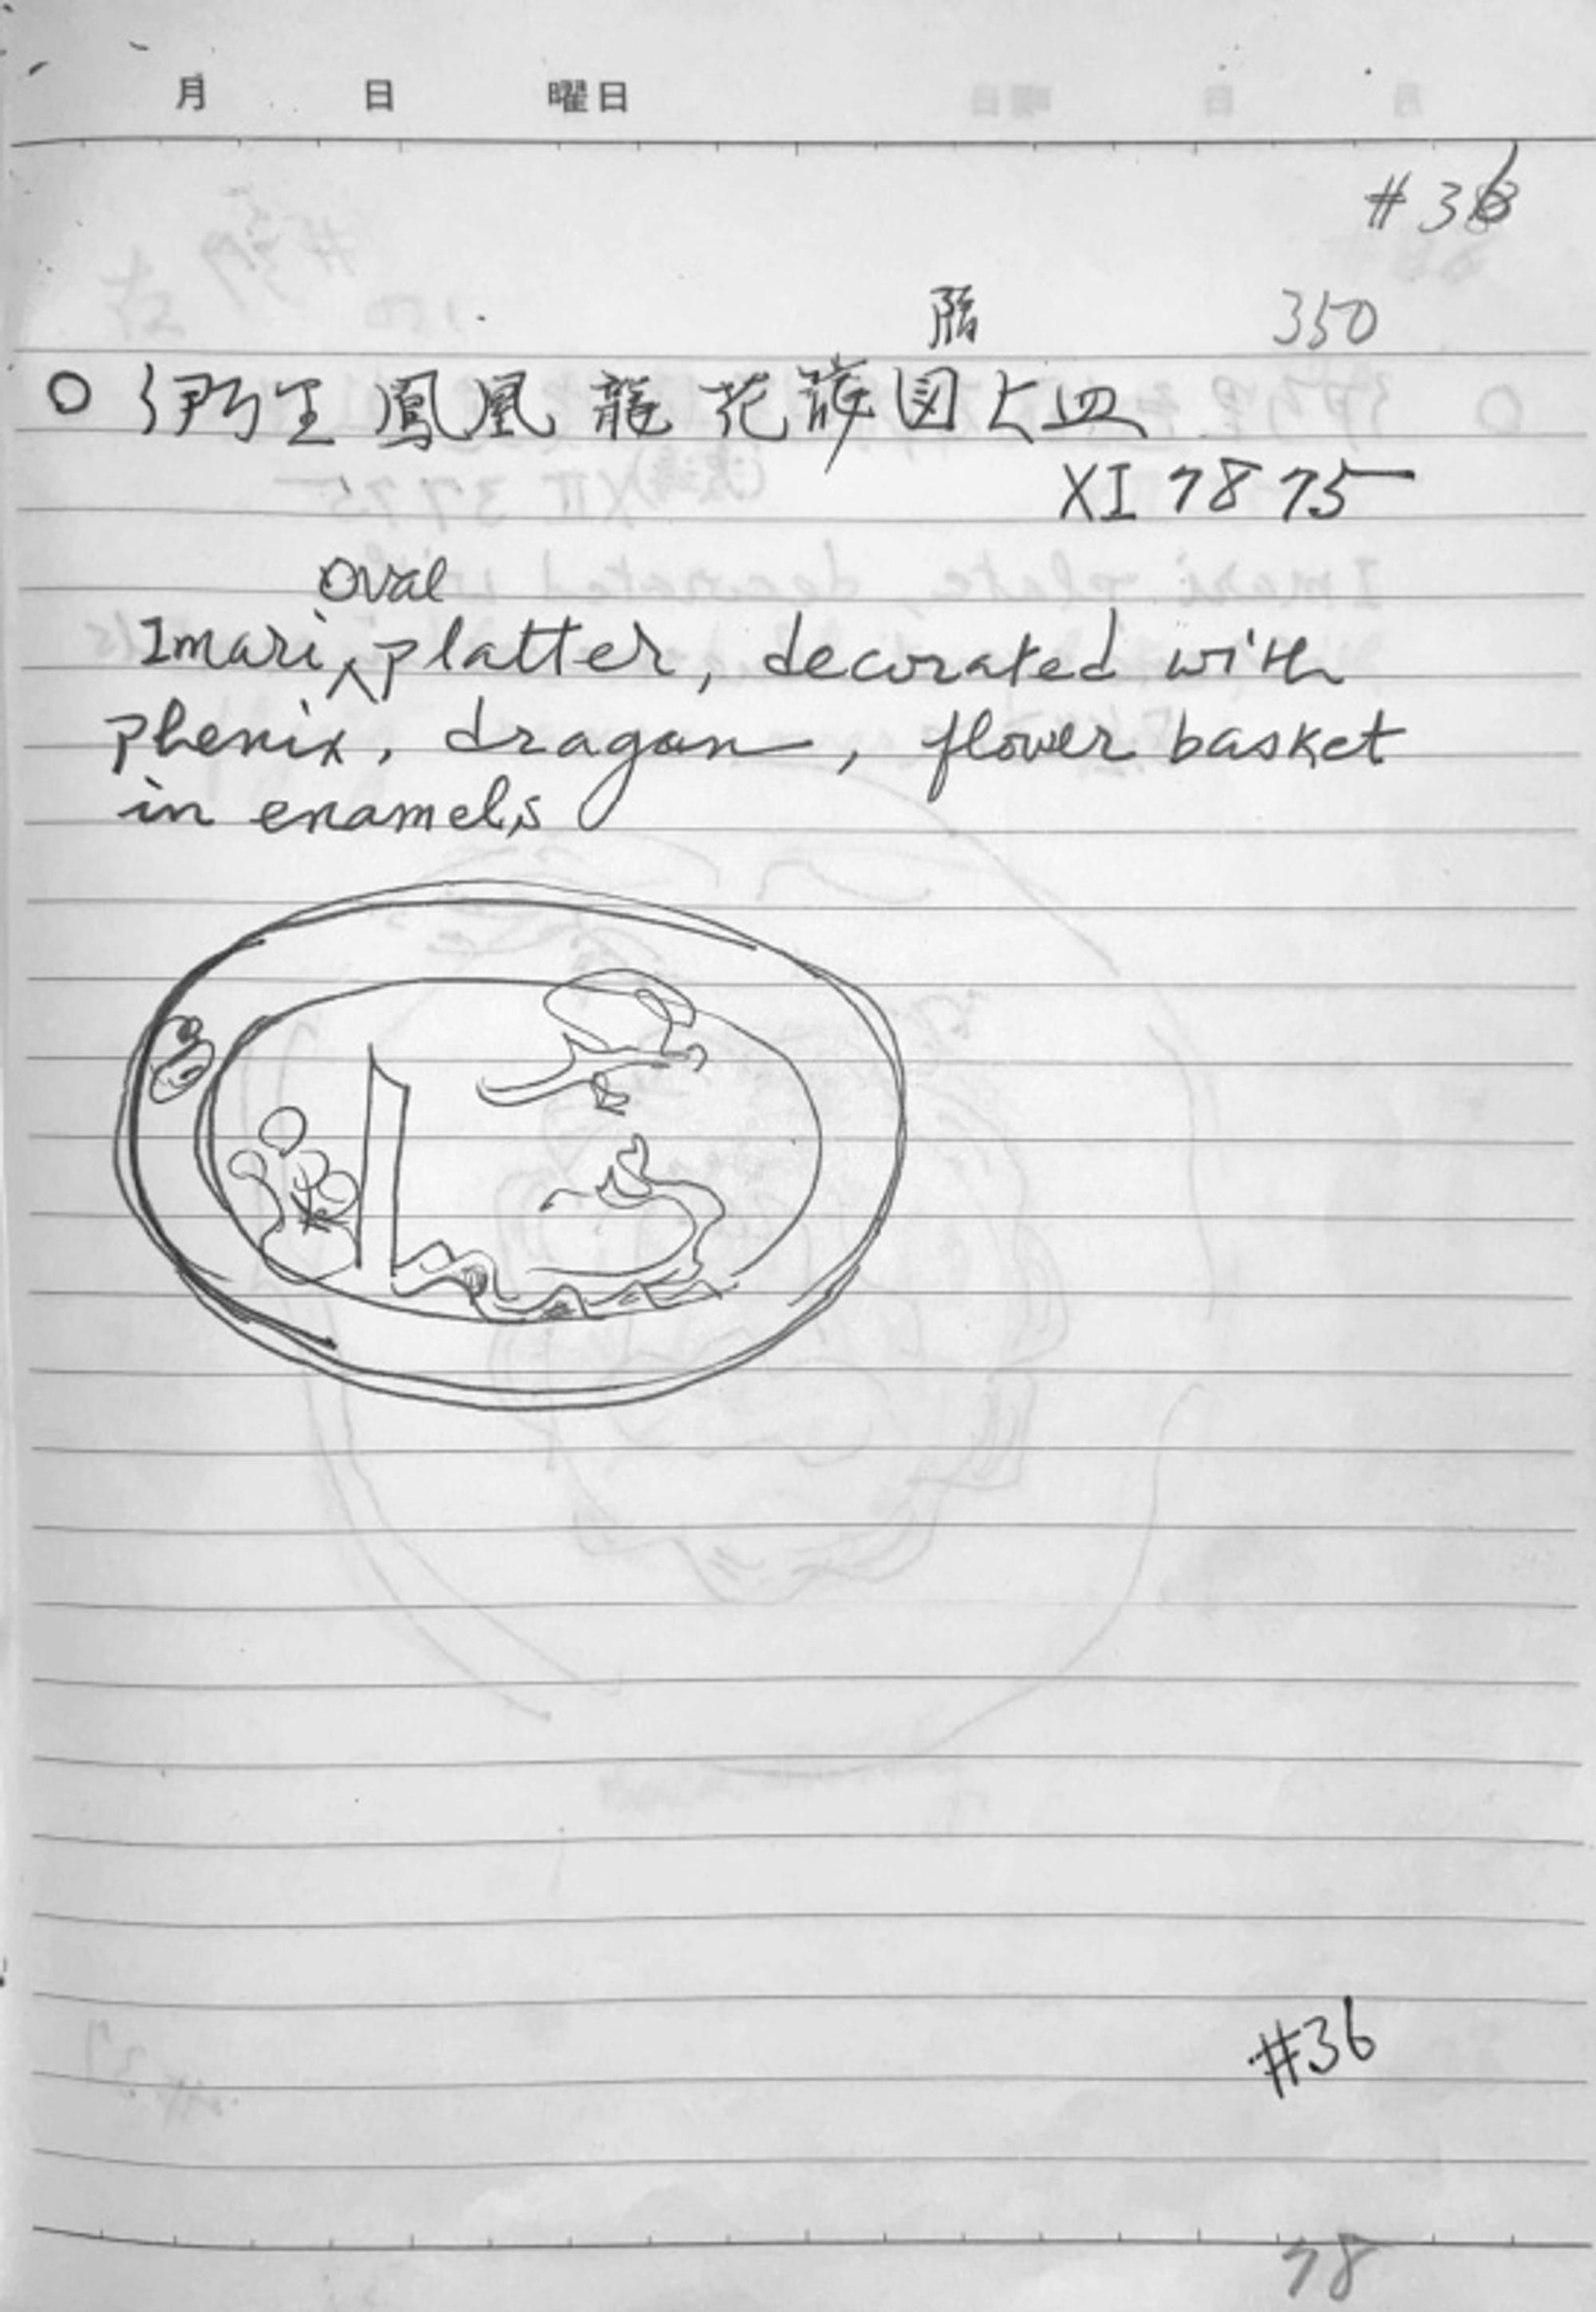 月 日 曜日
#36
350
○ 伊万里 鳳凰 龍 花 図大皿
XI 7875
oval
Imari platter, decorated with
phenix, dragon, flower basket
in enamels
#36
78